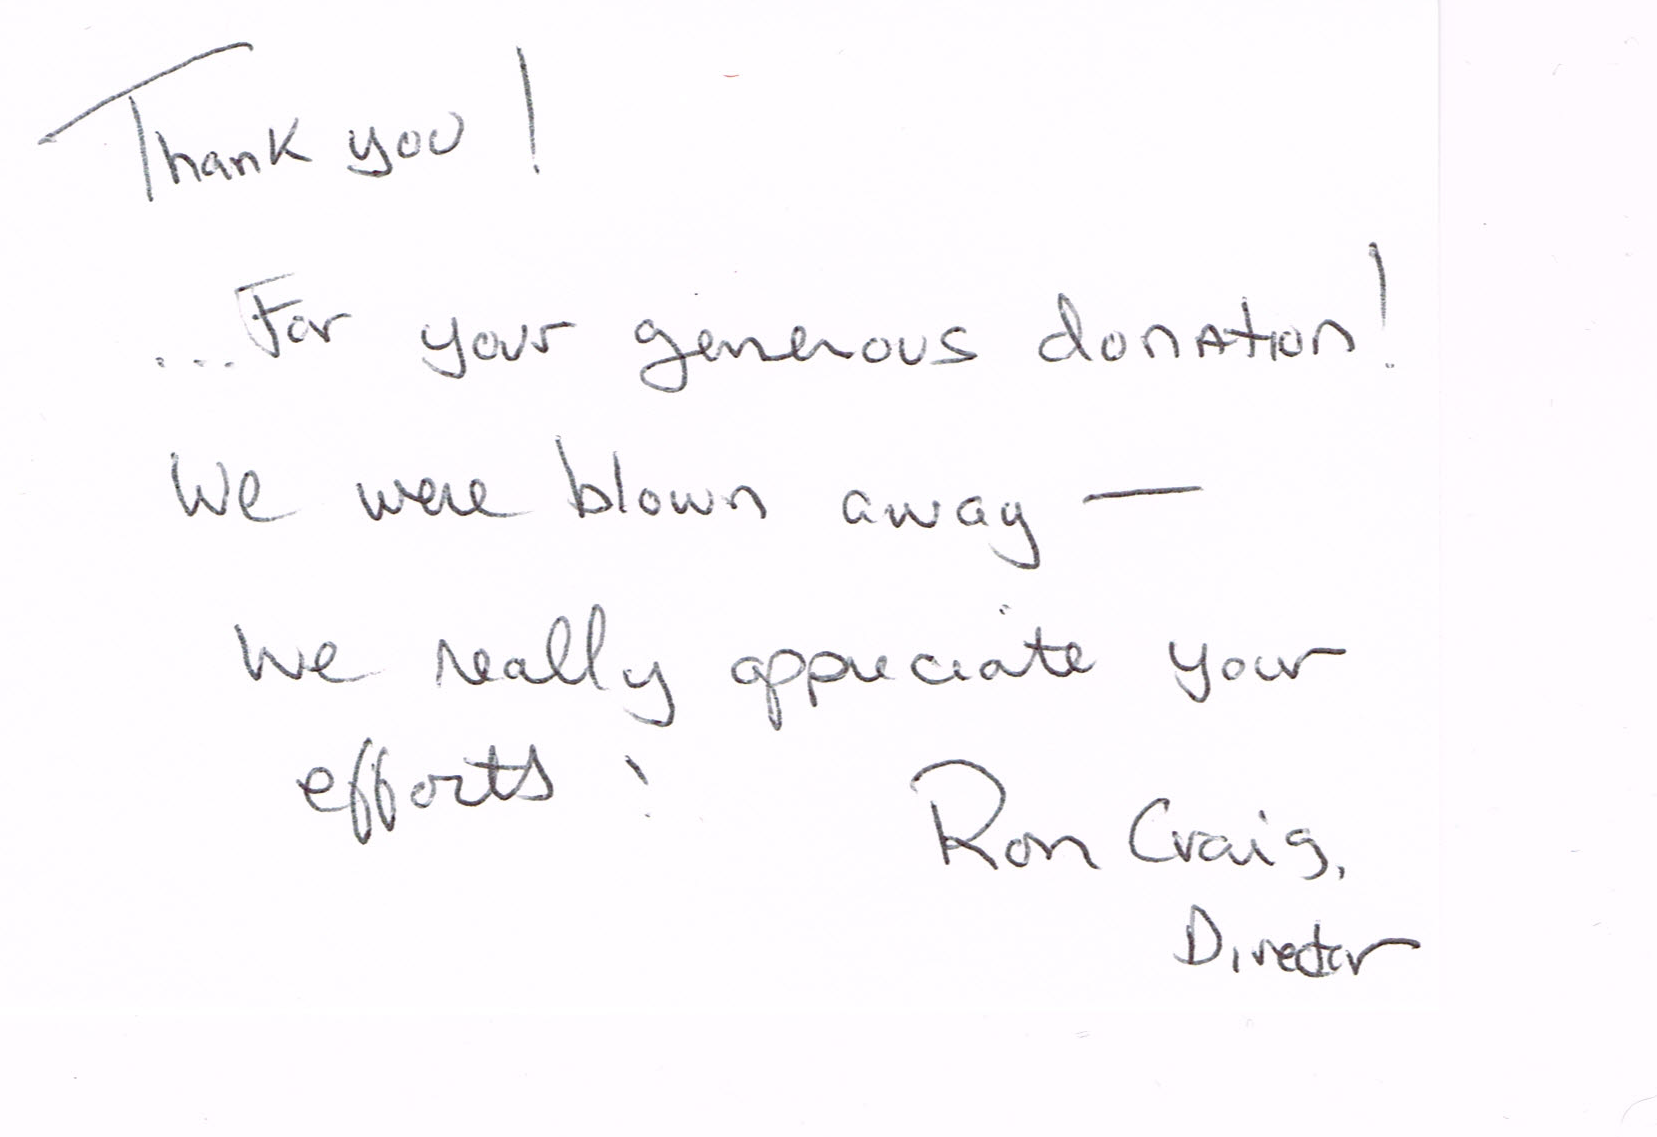 Thank you!
...For your generous donation!
We were blown away —
We really appreciate your
efforts!
Ron Craig,
Director